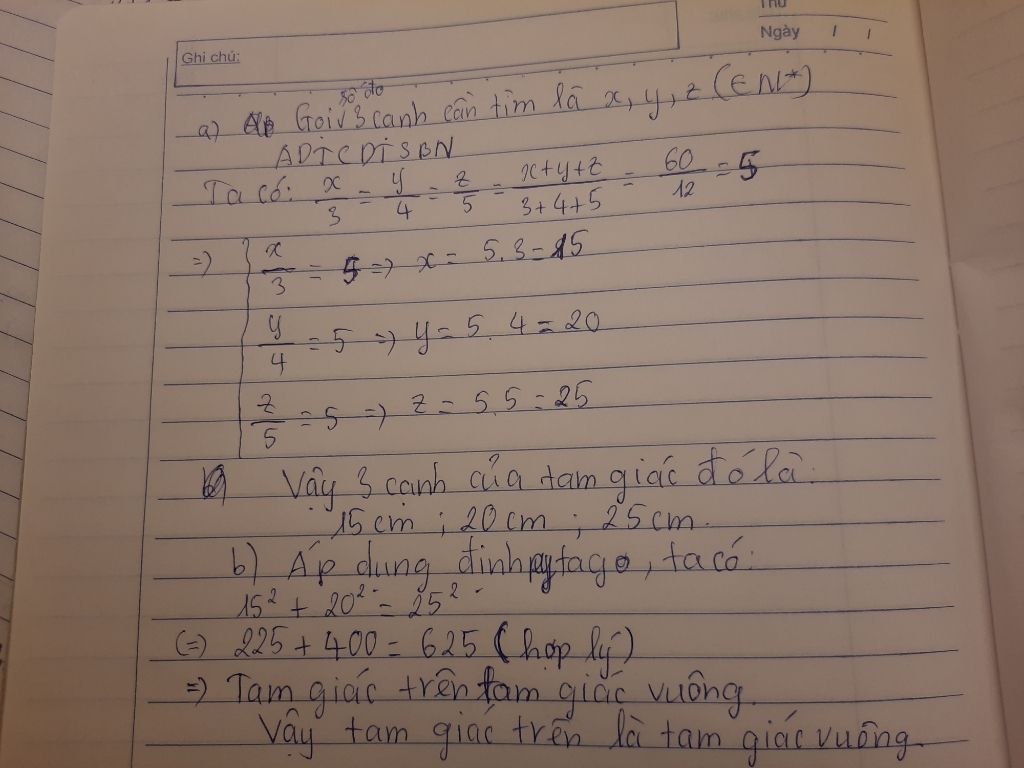 Thứ
Ngày / /
Ghi chú:
a) Gọi số đo 3 cạnh cần tìm là x, y, z (∈ N*)
ADTCDTSBN
Ta có: x/3 = y/4 = z/5 = x+y+z/3+4+5 = 60/12 = 5
=> { x/3 = 5 => x = 5.3 = 15
y/4 = 5 => y = 5.4 = 20
z/5 = 5 => z = 5.5 = 25
Vậy 3 cạnh của tam giác đó là:
15 cm ; 20 cm ; 25 cm.
b) Áp dụng định pytago, ta có:
15² + 20² = 25²
(=) 225 + 400 = 625 (hợp lý)
=> Tam giác trên tam giác vuông.
Vậy tam giác trên là tam giác vuông.